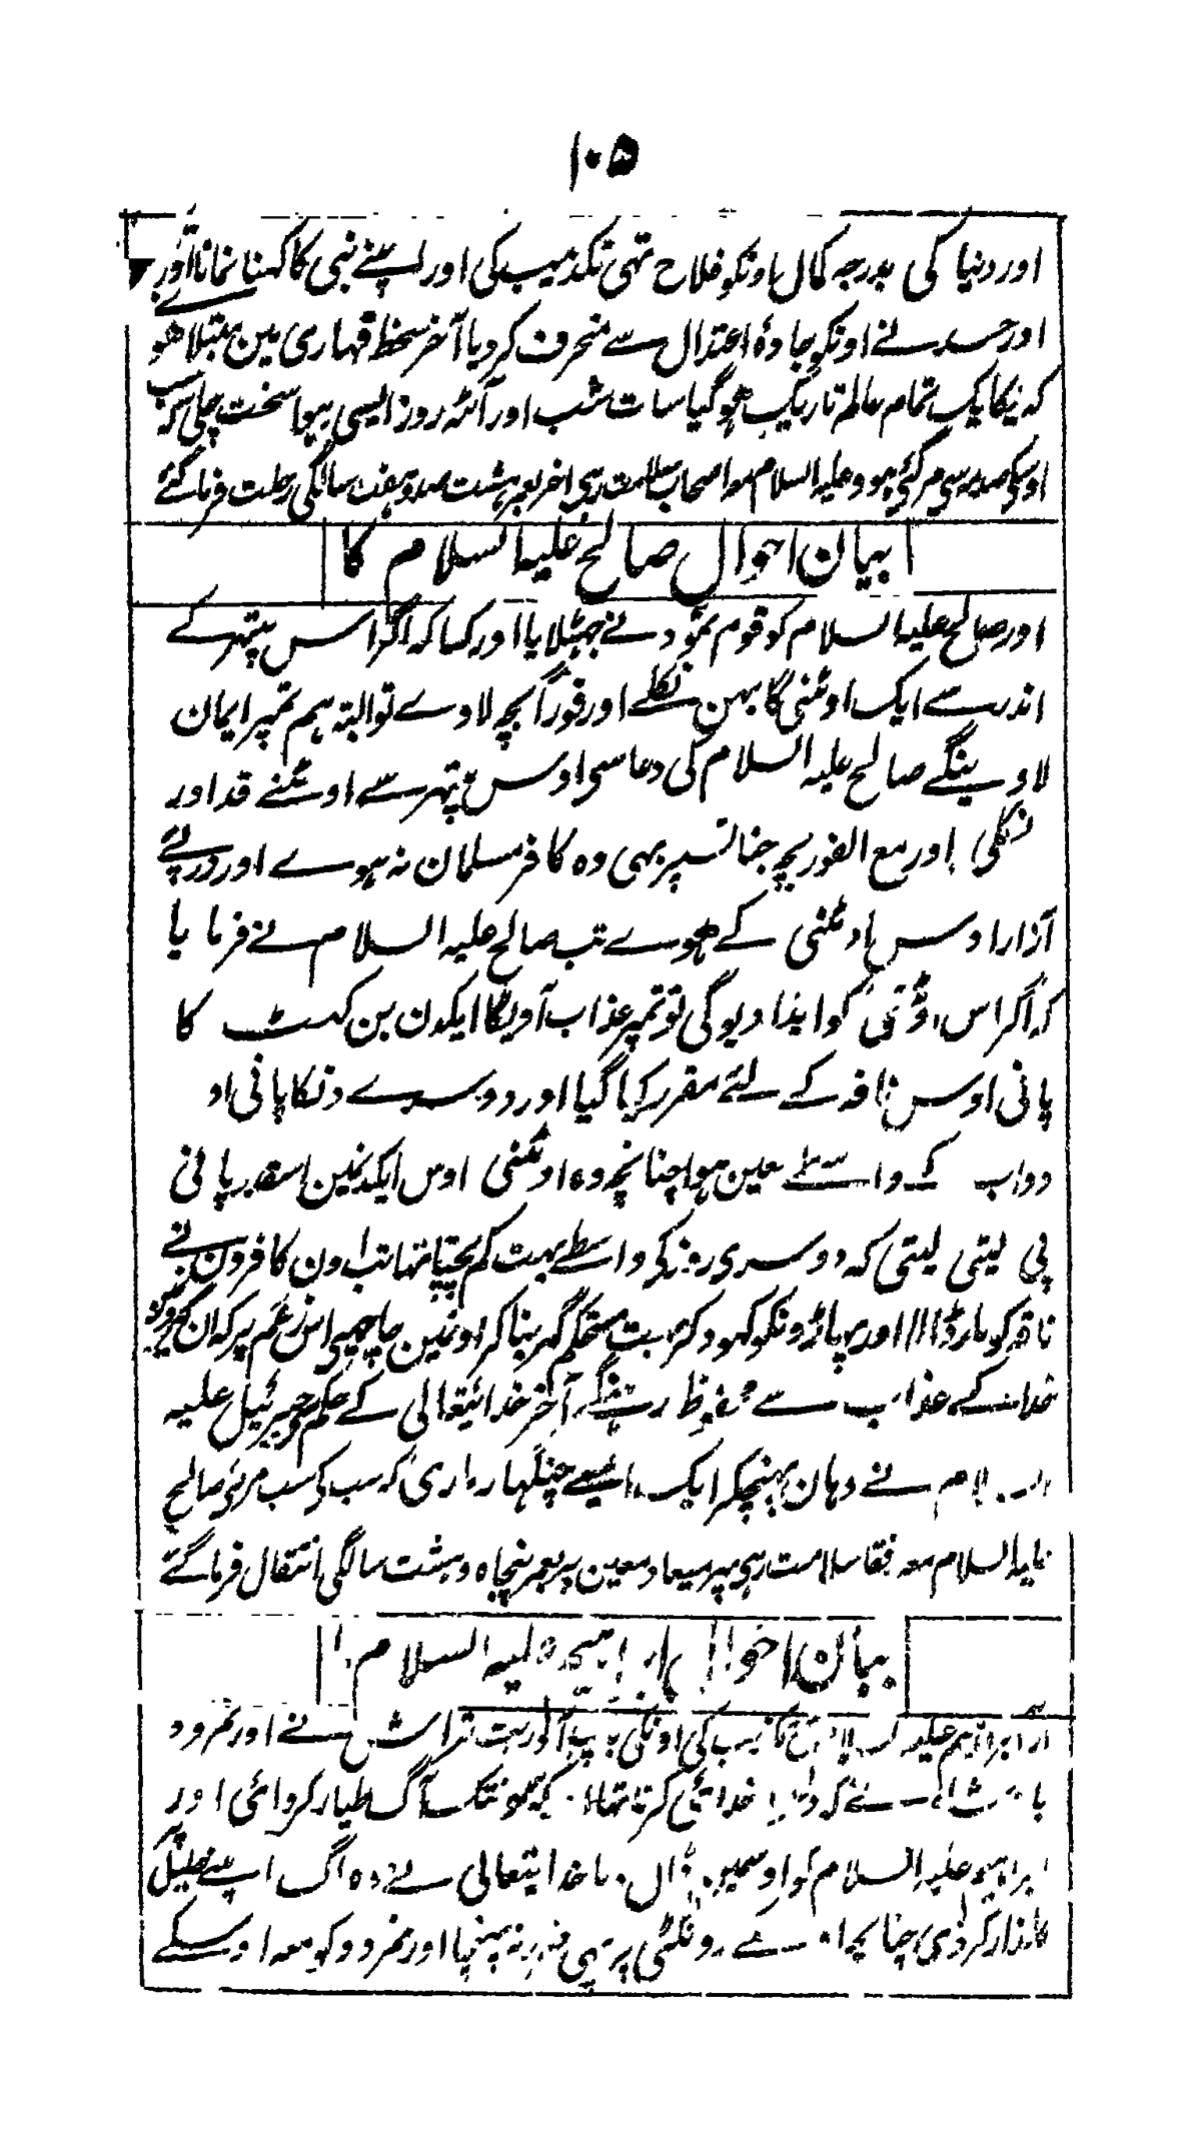 ۱۰۵
اور دنیا کی بدرجہ کمال اونکو فلاح تہی تکذیب کی اور اپنے نبی کا کہنا نمانا اور
اور حسد نے اونکو جادۂ اعتدال سے منحرف کر دیا آخر سخط قہاری مین مبتلا ھو
کہ یکایک تمام عالم تاریک ھو گیا سات شب اور آٹہ روز ایسی ہوا سخت چلی کہ سب
اوسکی صدمہ سی مر گئی ہود علیہ السلام معہ اصحاب سلامت رہی آخر بعمر ہشت صد و ہفت سالگی رحلت فرما گئے
بیان احوال صالح علیہ السلام کا
اور صالح علیہ السلام کو قوم ثمود نے جہٹلایا اور کہا کہ اگر اس پتہر کے
اندر سے ایک اوٹنی گابہن نکلے اور فوراً بچہ لاوے تو البتہ ہم تمپر ایمان
لاوینگے صالح علیہ السلام کی دعا سی اوس پتہر سے اوٹنے قداور
نکلی اور مع الفور بچہ جنا تسپر بہی وہ کافر مسلمان نہ ہوے اور درپئے
آزار اوس اوٹنی کے ھوے تب صالح علیہ السلام نے فرمایا
کہ اگر اس اوٹنی کو ایذا دیوگی تو تمپر عذاب آویگا ایکدن بن کہٹ کا
پانی اوس ناقہ کے لئے مقرر کیا گیا اور دوسرے دنکا پانی او
دواب کے واسطے معین ہوا چنانچہ وہ اوٹنی اوس ایکدنمین اسقدر پانی
پی لیتی لیتی کہ دوسری روز کے واسطے بہت کم بچتا تہا تب اون کافرون نے
ناقہ کو مار ڈالا اور پہاڑونکو کہود کر بہت مستحکم گہر بناکر اونمین جا چہپی اس زعم پر کہ ان
خدا کے عذاب سے محفوظ رہینگے آخر خدائیتعالی کے حکم جبرئیل علیہ
السلام نے وہان پہنچکر ایک ایسے چنگہار ماری کہ سب کے سب مر گئی صالح
علیہ السلام معہ رفقا سلامت رہی پہر میعاد معین پر بعمر پنجاہ و ہشت سالگی انتقال فرما گئے
بیان احوال ابراہیم علیہ السلام
اور ابراہیم علیہ السلام تکذیب کی اونکی باپ آذر بت تراش نے اور نمرود
بادشاہ نے کہ دعوی خدائی کرتا تہا آگ طیار کروائی اور
ابراہیم علیہ السلام کو اوسمین ڈال دیا خدائیتعالی نے وہ آگ اپنے خلیل پر
گلزار کر دی چنانچہ رونگٹی پر بہی ضرر نہ پہنچا اور نمرود کو معہ اوسکے